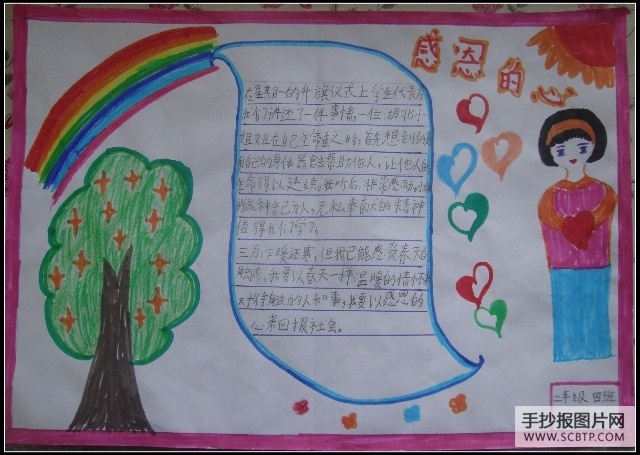 感恩的心
在星期一的升旗仪式上学生代表为
我们讲述了一件事情,一位湖北小
姐姐在自己生命垂危之时,首先想到的是
自己的身体器官去帮助他人,让他人的
生命得以延续。我听后,非常感动。小姐
的这种舍己为人,无私奉献的精神
值得我们学习。
三月,乍暖还寒,但我已能感受春天的
我要以春天一样温暖的情怀来
对待身边的人和事,我要以感恩的
心来回报社会。
二年级四班
手抄报图片网
WWW.SCBTP.COM